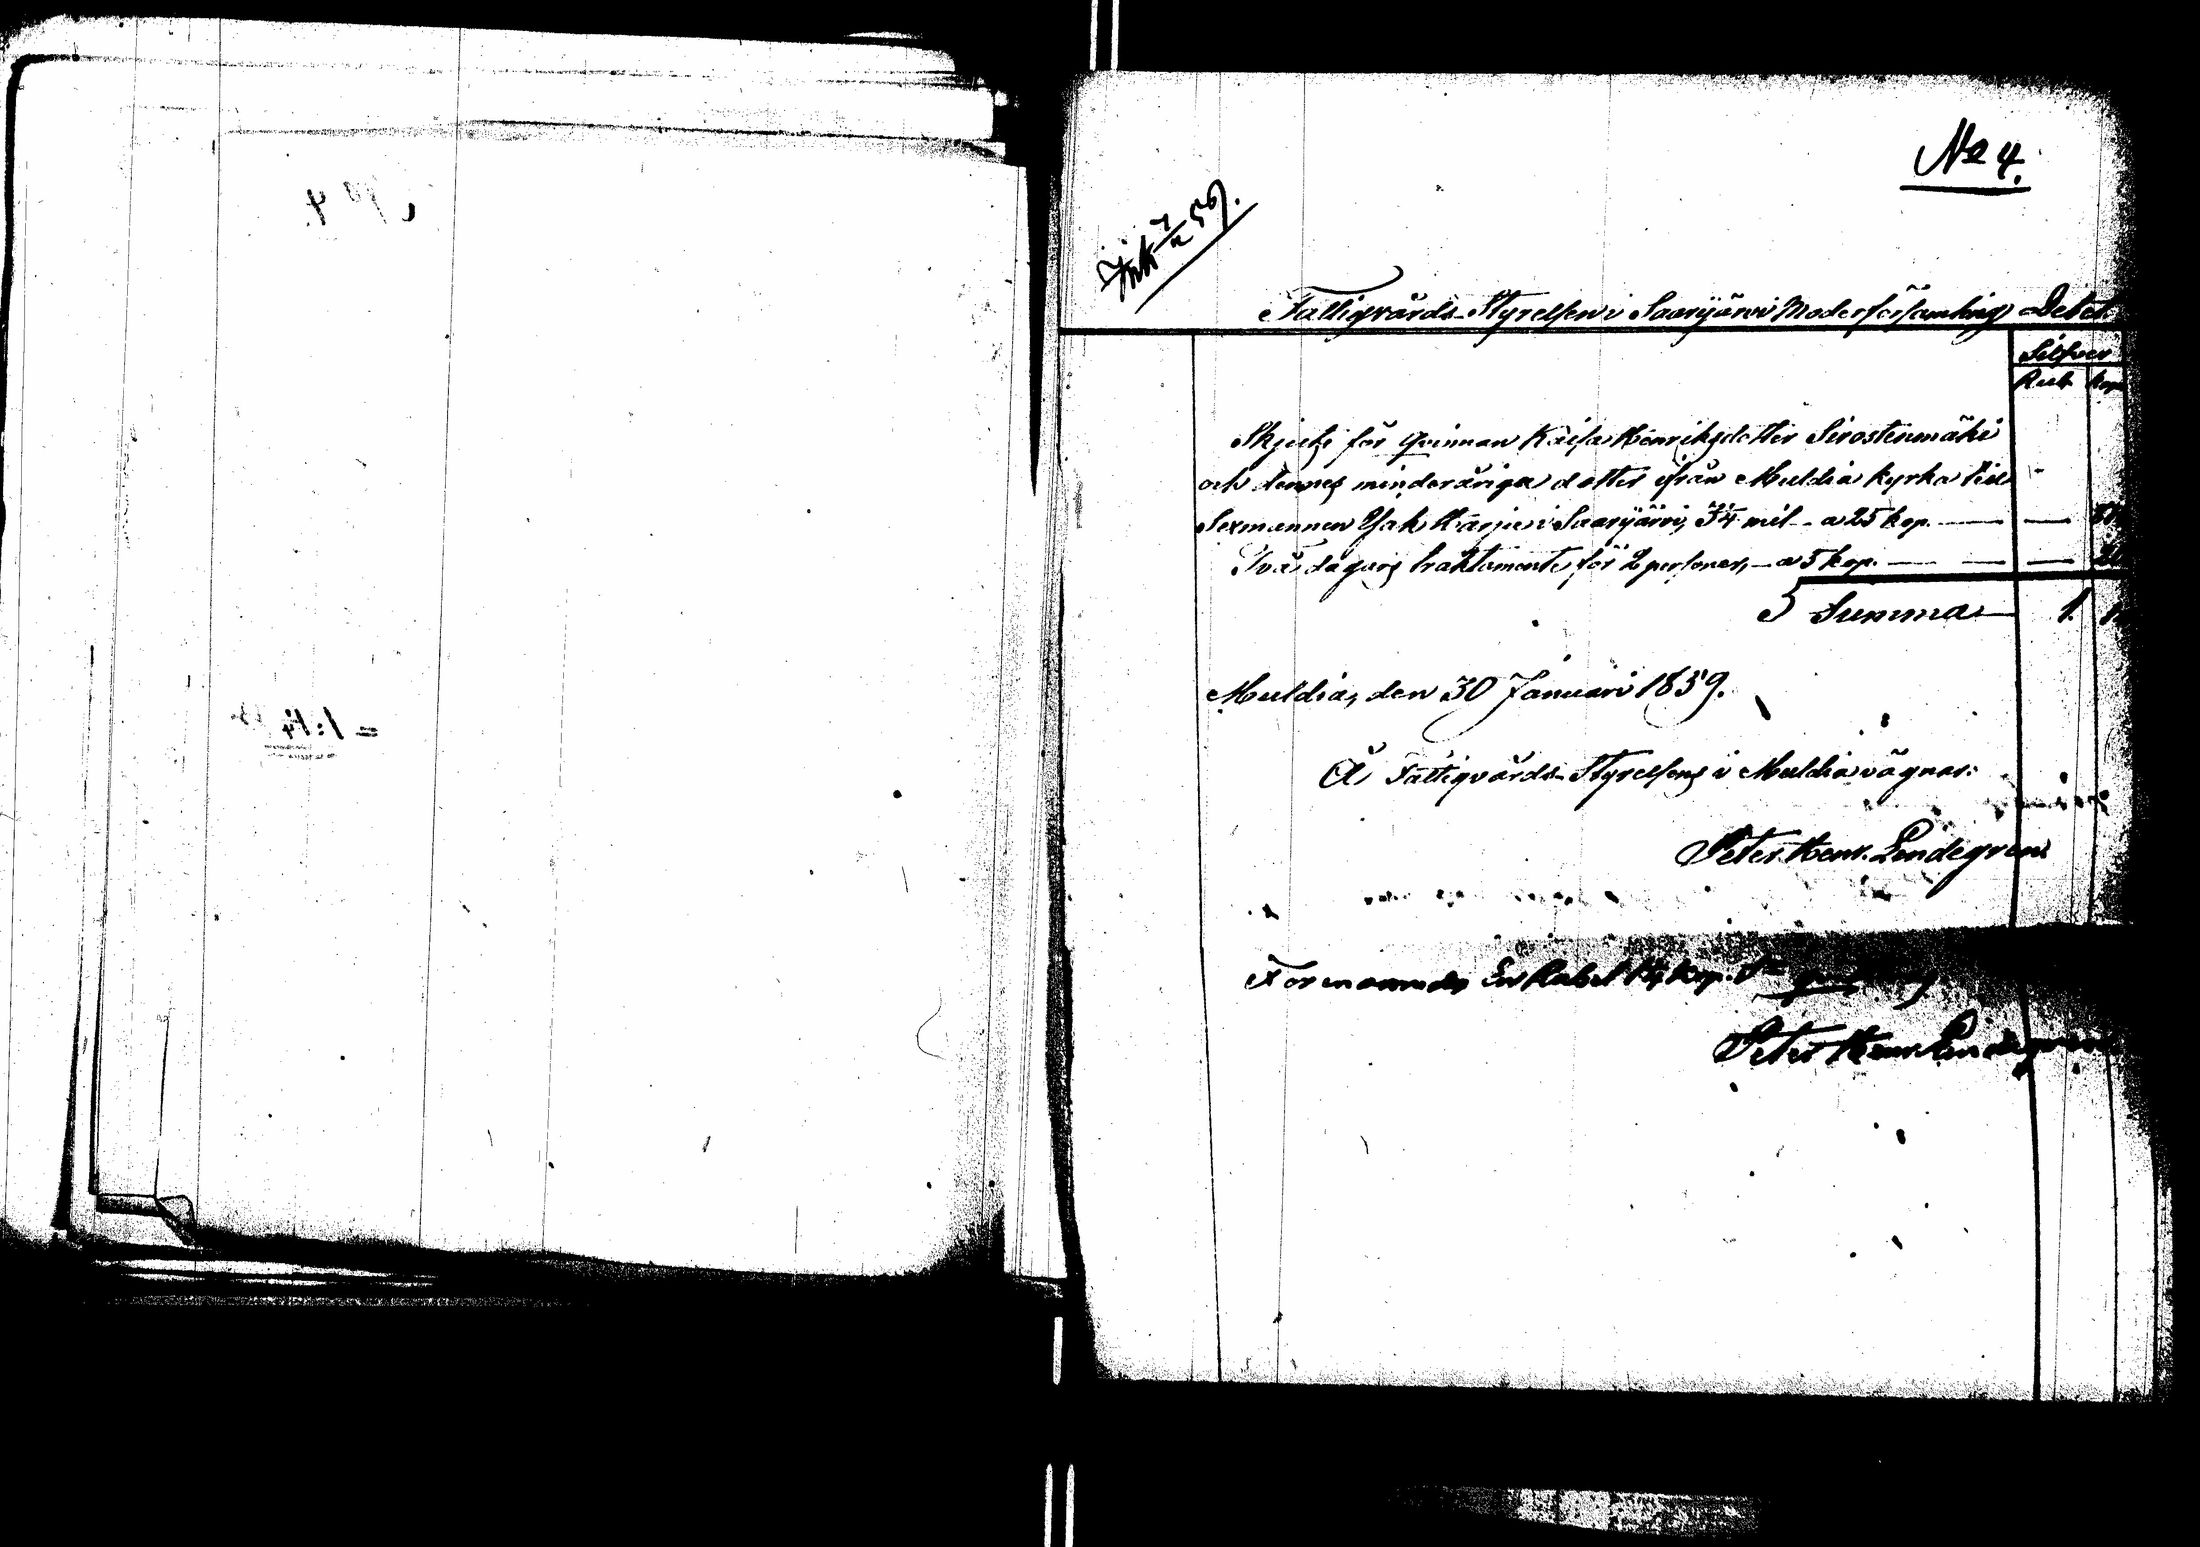 No 4.
Ink 7/2 59.
Fattigvårds-Styrelsen i Saarijärvi Moderförsamling Debet
Silfver
Rub. kop.
Skjuts för qvinnan Kaisa Henriksdotter Sirostenmäki
och dennes minderåriga dotter ifrån Muldia kyrka till
Sexmannen Isak Karjui i Saarijärvi, 3¾ mil - a 25 kop. —
Två dagars traktamente för 2 personer, — a 5 kop. — —
Summa — 1.
Muldia, den 30 Januari 1859.
Å Fattigvårds-Styrelsens i Muldia vägnar:
Peter Henr. Lindegren
En Rubel 14 kop. Sr
Peter Henr. Lindegren
= 1: 14